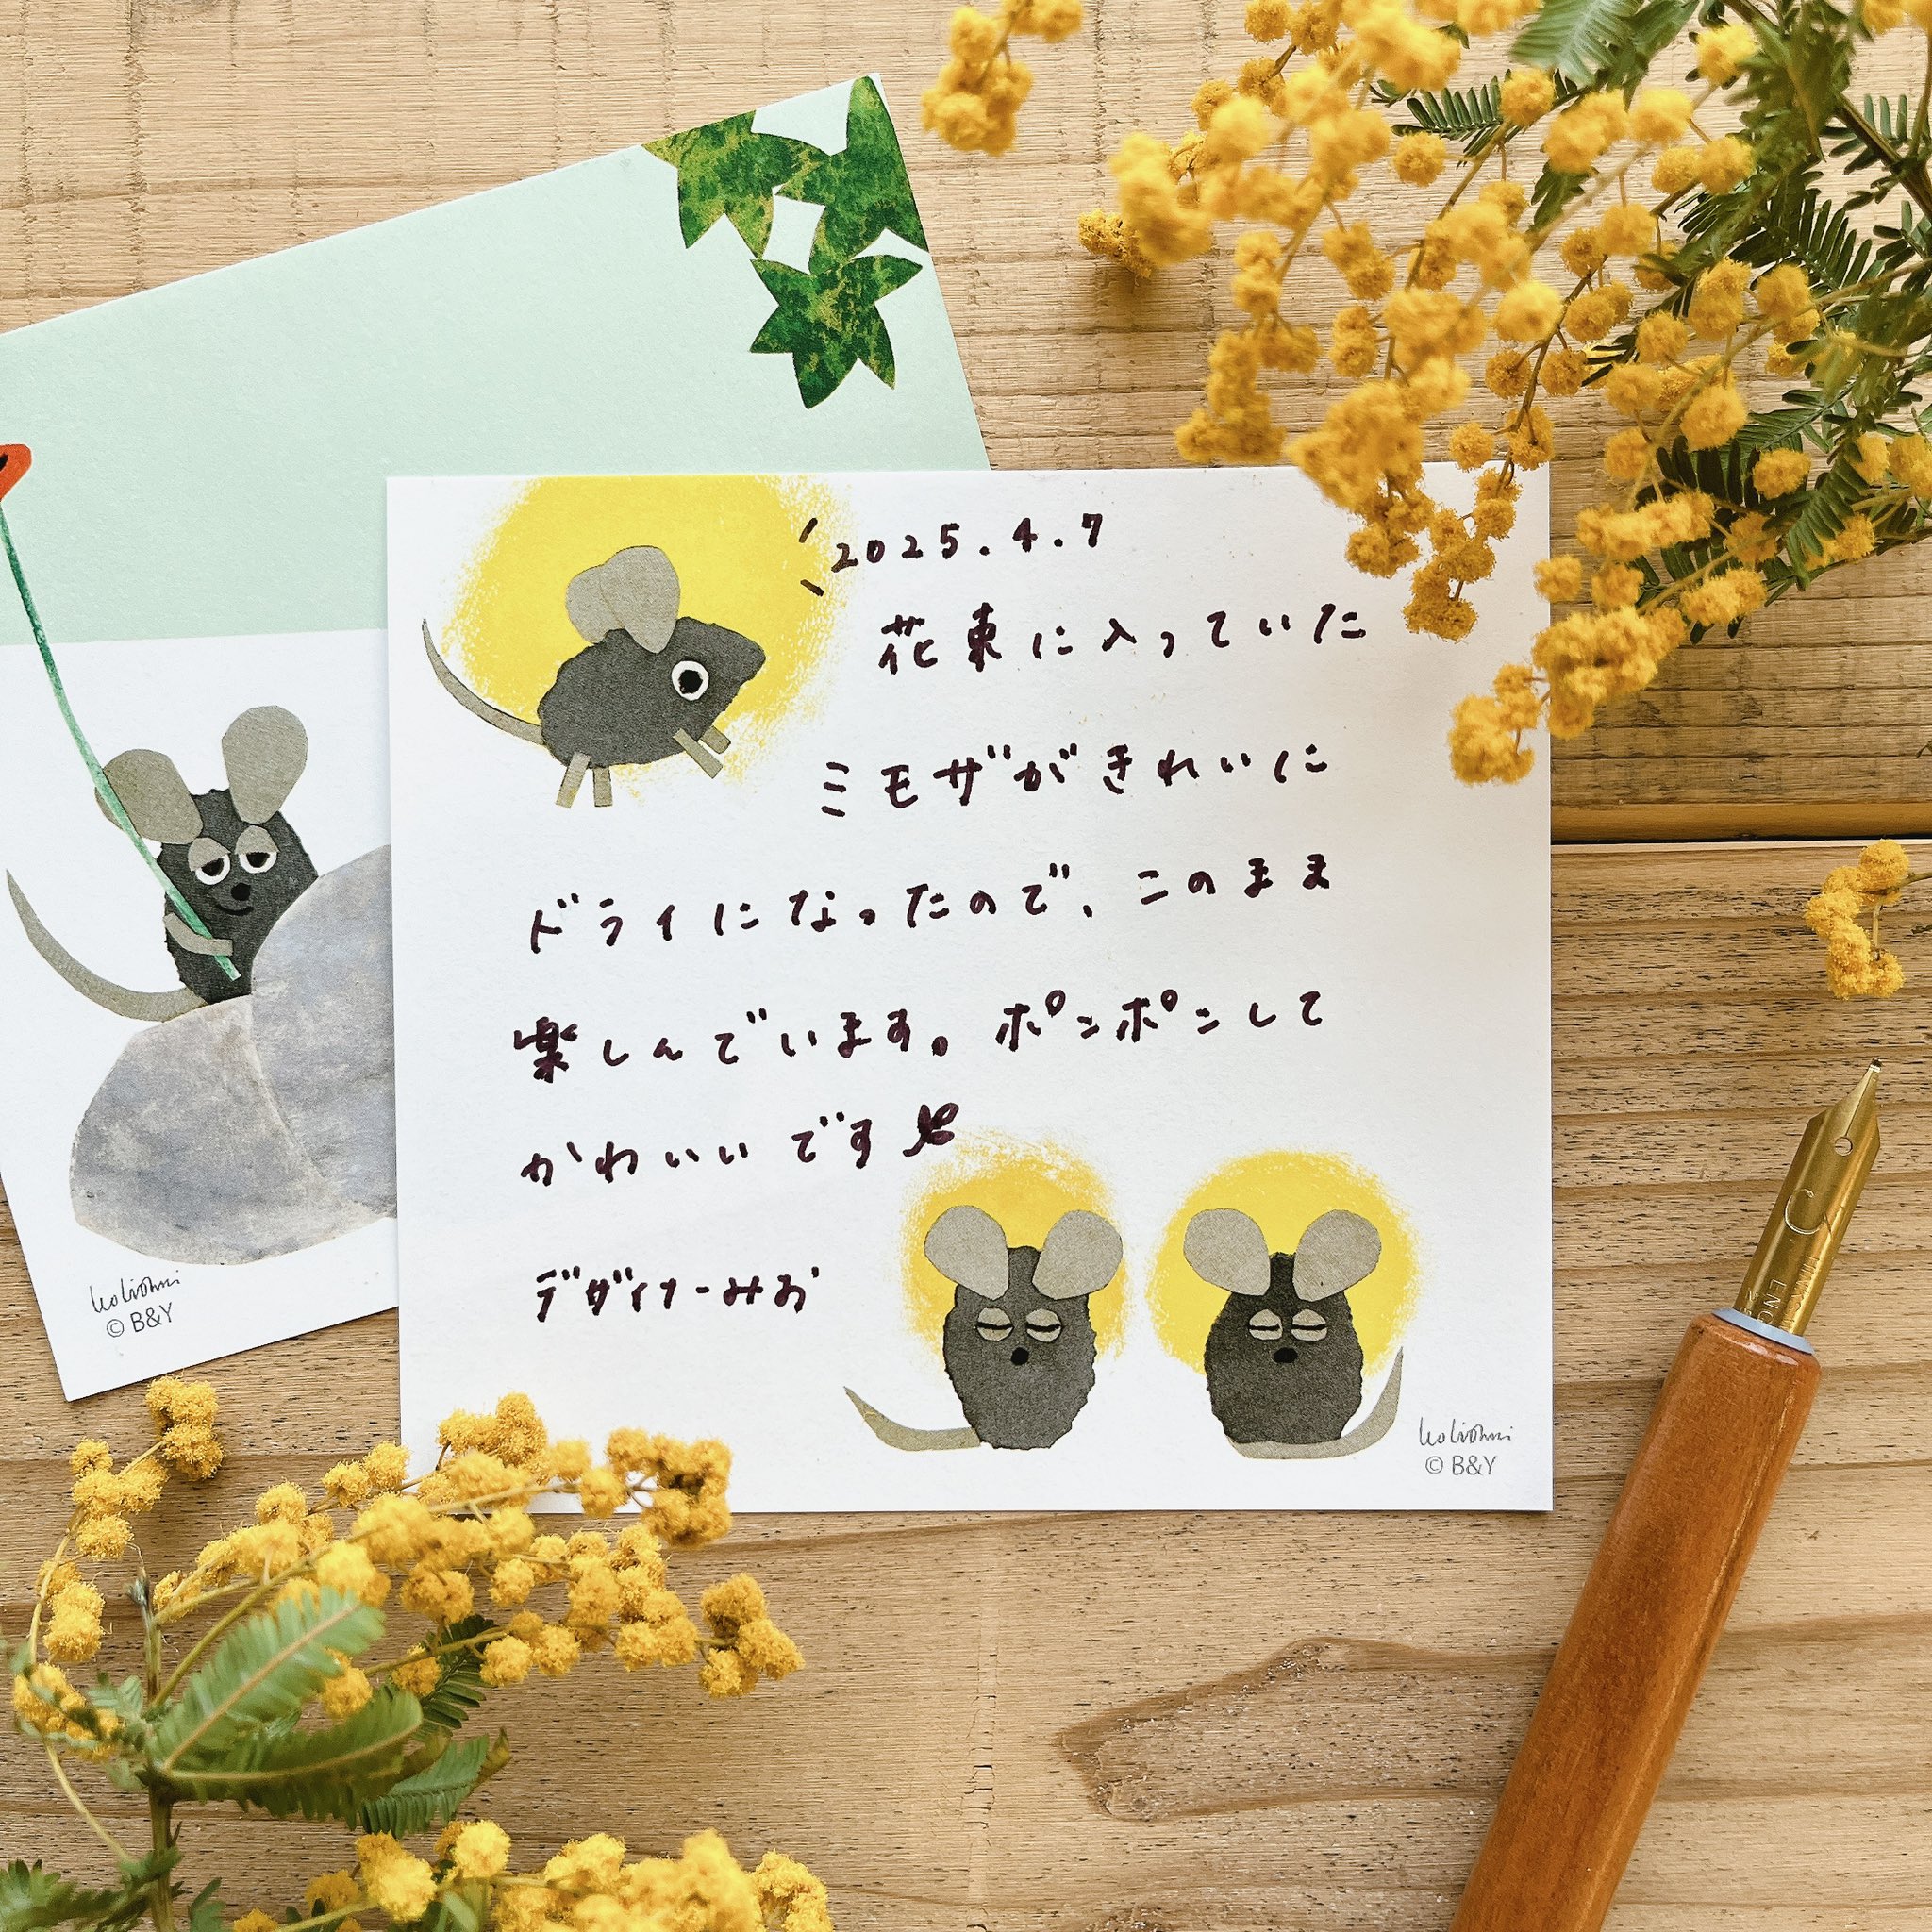 2025.4.7
花束に入っていた
ミモザがきれいに
ドライになったので、このまま
楽しんでいます。ポンポンして
かわいいです
デザイナーみお
Leo Lionni
© B&Y
Leo Lionni
© B&Y